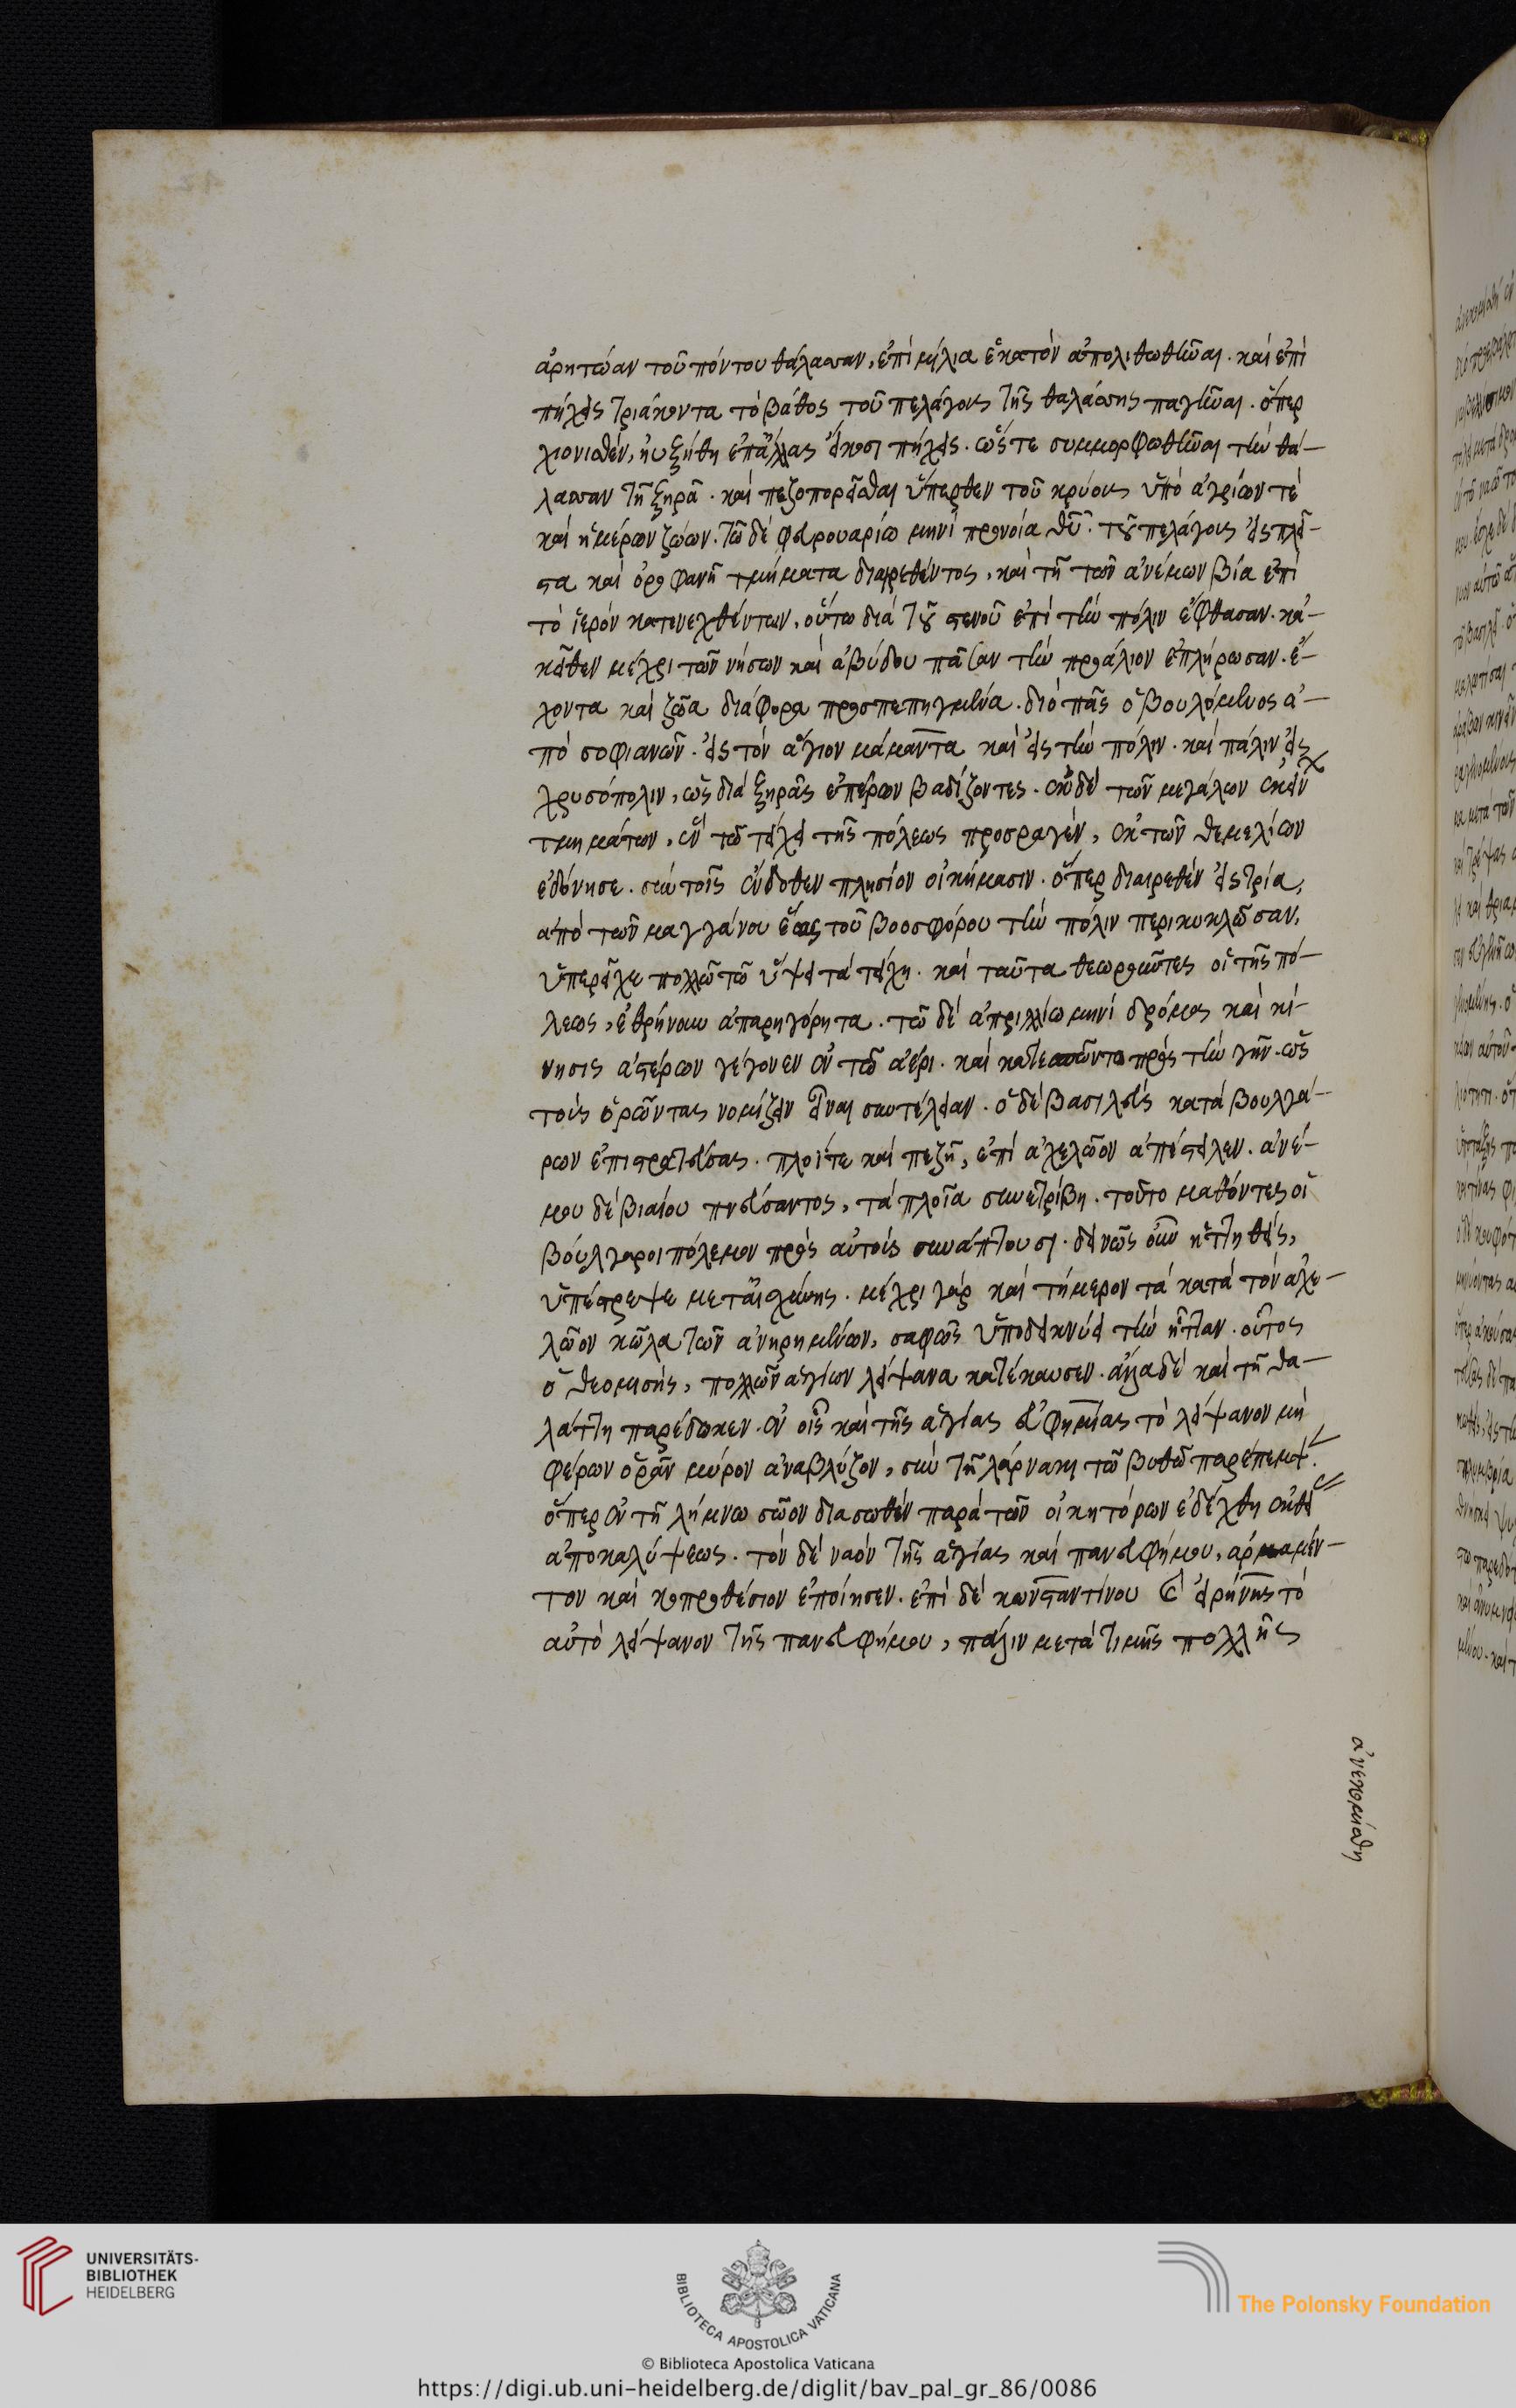 ἀρητώαν τοῦ πόντου θάλασσαν, ἐπὶ μίλια ἑκατὸν ἀπολιθωθῆναι. καὶ ἐπὶ
πήχεις τριάκοντα τὸ βάθος τοῦ πελάγους τῆς θαλάσσης παγῆναι. ὅπερ
χιονισθέν, ηὐξήθη ἐπ᾽ ἄλλας εἴκοσι πήχεις. ὥστε συμμορφωθῆναι τὴν θά-
λασσαν τῇ ξηρᾷ. καὶ πεζοπορεῖσθαι ὕπερθεν τοῦ κρύους ὑπὸ ἀγρίων τὲ
καὶ ἡμέρων ζώων. τῷ δὲ φευρουαρίῳ μηνὶ προνοίᾳ θῦ. τοῦ πελάγους εἰς πλεῖ-
στα καὶ ὀροφανῆ τμήματα διαιρεθέντος, καὶ τῇ τῶν ἀνέμων βίᾳ ἐπὶ
τὸ ἱερὸν κατενεχθέντων, οὕτω διὰ τοῦ στενοῦ ἐπὶ τὴν πόλιν ἔφθασαν. κἀ-
κεῖθεν μέχρι τῶν νήσων καὶ ἀβύδου πᾶσαν τὴν προάλιον ἐπλήρωσαν. ἔ-
χοντα καὶ ζῶα διάφορα προσπεπηγμένα. διὸ πᾶς ὁ βουλόμενος ἀ-
πὸ σοφιανῶν. εἰς τὸν ἅγιον μάμαντα καὶ εἰς τὴν πόλιν. καὶ πάλιν εἰς
χρυσόπολιν, ὡς διὰ ξηρᾶς ἐπέρων βαδίζοντες. ἐκ δὲ τῶν μεγάλων ἐκείν
τμημάτων, ἓν τῷ τείχει τῆς πόλεως προσραγέν, ἐκ τῶν θεμελίων
ἐδόνησε. σὺν τοῖς ἔνδοθεν πλησίον οἰκήμασιν. ὅπερ διαιρεθὲν εἰς τρία,
ἀπὸ τῶν μαγγάνου ἕως τοῦ βοοσφόρου τὴν πόλιν περικυκλῶσαν,
ὑπερεῖχε πολλῷ τῷ ὕψει τὰ τείχη. καὶ ταῦτα θεωροῦντες οἱ τῆς πό-
λεως, ἐθρήνουν ἀπαρηγόρητα. τῷ δὲ ἀπριλλίῳ μηνὶ δρόμος καὶ κί-
νησις ἀστέρων γέγονεν ἐν τῷ ἀέρι. καὶ κατεσσῶντο πρὸς τὴν γῆν. ὡς
τοὺς ὁρῶντας νομίζειν εἶναι συντέλειαν. ὁ δὲ βασιλεὺς κατὰ βουλγά-
ρων ἐπιστρατεύσας. πλοΐ τε καὶ πεζῇ, ἐπὶ ἀχελῶον ἀπέστειλεν. ἀνέ-
μου δὲ βιαίου πνεύσαντος, τὰ πλοῖα συνετρίβη. τοῦτο μαθόντες οἱ
βούλγαροι πόλεμον πρὸς αὐτοὺς συνάπτουσι. δεινῶς οὖν ἡττηθείς,
ὑπέστρεψε μετ᾽ αἰσχύνης. μέχρι γὰρ καὶ τήμερον τὰ κατὰ τὸν ἀχε-
λῶον κῶλα τῶν ἀνῃρημένων, σαφῶς ὑποδεικνύει τὴν ἧτταν. οὗτος
ὁ θεομισής, πολλῶν ἁγίων λείψανα κατέκαυσεν. ἄλλα δὲ καὶ τῇ θα-
λάττῃ παρέδωκεν. ἐν οἷς καὶ τῆς ἁγίας εὐφημίας τὸ λείψανον μὴ
φέρων ὁρᾶν μύρον ἀναβλύζον, σὺν τῇ λάρνακι τῷ βυθῷ παρέπεμψ.
ὅπερ ἐν τῇ λήμνῳ σῶον διασωθὲν παρὰ τῶν οἰκητόρων ἐδέχθη ἐκ θεί
ἀποκαλύψεως. τὸν δὲ ναὸν τῆς ἁγίας καὶ πανευφήμου, ἀρμαμέν-
τον καὶ κοπροθέσιον ἐποίησεν. ἐπὶ δὲ κωνσταντίνου καὶ εἰρήνης τὸ
αὐτὸ λείψανον τῆς πανευφήμου, πάλιν μετὰ τιμῆς πολλῆς
ἀνεκομίσθη
UNIVERSITÄTS-
BIBLIOTHEK
HEIDELBERG
BIBLIOTECA APOSTOLICA VATICANA
The Polonsky Foundation
© Biblioteca Apostolica Vaticana
https://digi.ub.uni-heidelberg.de/diglit/bav_pal_gr_86/0086